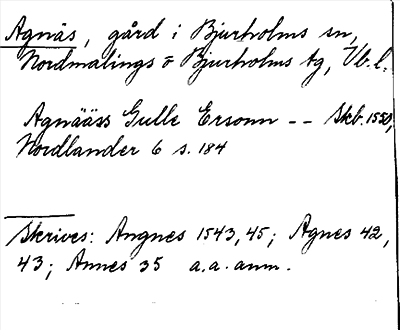 Agnäs, gård i Bjurholms sn,
Nordmalings o Bjurholms tg, Vb. l.
Agnääss Gulle Ersonn -- Skb. 1550,
Nordlander 6 s. 184
Skrives: Angnes 1543, 45; Agnes 42,
43; Annes 35 a.a. anm.